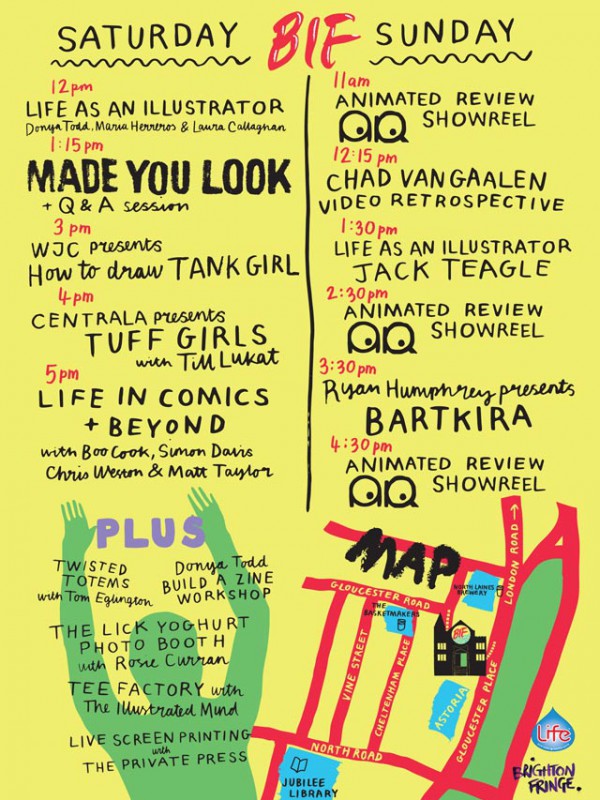 SATURDAY
BIF
SUNDAY
12pm
LIFE AS AN ILLUSTRATOR
Donya Todd, Maria Herreros & Laura Callaghan
1:15pm
MADE YOU LOOK
+ Q & A session
3 pm
WJC presents
How to draw TANK GIRL
4pm
CENTRALA presents
TUFF GIRLS
with Till Lukat
5pm
LIFE IN COMICS
+ BEYOND
with Boo Cook, Simon Davis
Chris Weston & Matt Taylor
11am
ANIMATED REVIEW
AR SHOWREEL
12:15 pm
CHAD VANGAALEN
VIDEO RETROSPECTIVE
1:30pm
LIFE AS AN ILLUSTRATOR
JACK TEAGLE
2:30pm
ANIMATED REVIEW
AR SHOWREEL
3:30pm
Ryan Humphrey presents
BARTKIRA
4:30pm
ANIMATED REVIEW
AR SHOWREEL
PLUS
TWISTED
TOTEMS
with Tom Eglington
Donya Todd
BUILD A ZINE
WORKSHOP
THE LICK YOGHURT
PHOTO BOOTH
with Rosie Curran
TEE FACTORY with
The Illustrated Mind
LIVE SCREEN PRINTING
with
THE PRIVATE PRESS
MAP
LONDON ROAD →
NORTH LAINES
BREWERY
GLOUCESTER ROAD
THE
BASKETMAKERS
BIF
VINE STREET
CHELTENHAM PLACE
ASTORIA
GLOUCESTER PLACE
NORTH ROAD
JUBILEE
LIBRARY
Life
BRIGHTON
FRINGE.